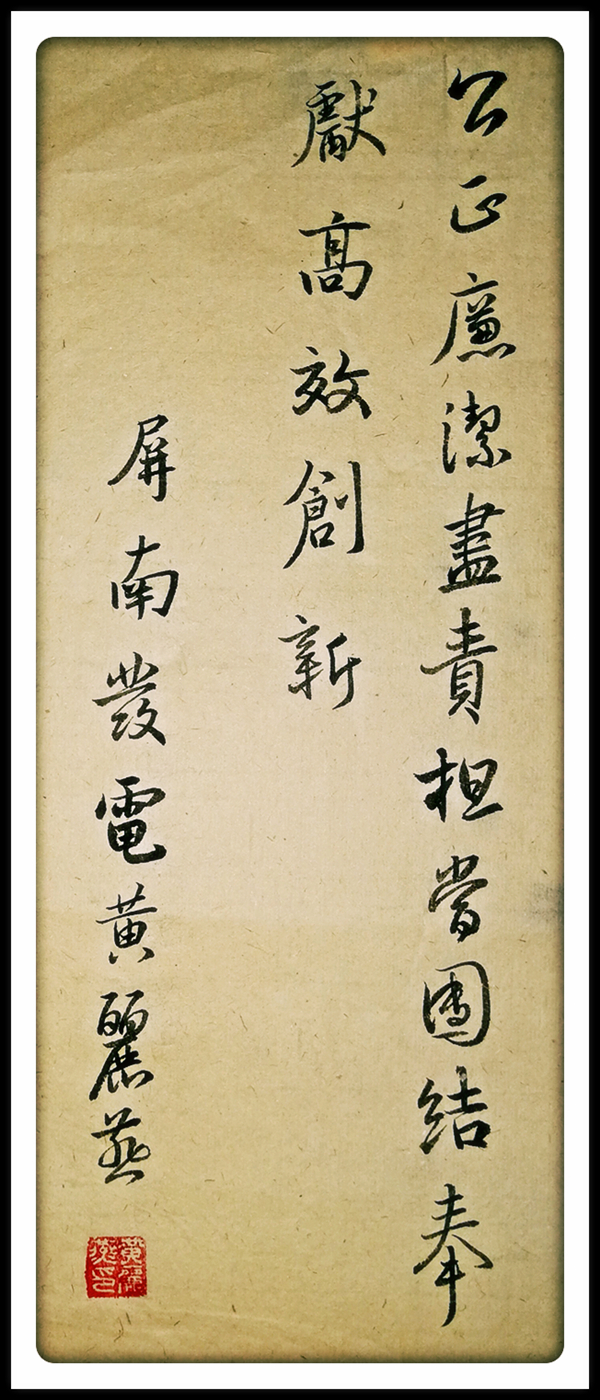 公正廉潔盡責担當團結奉
獻髙效創新
屏南發電黃麗燕